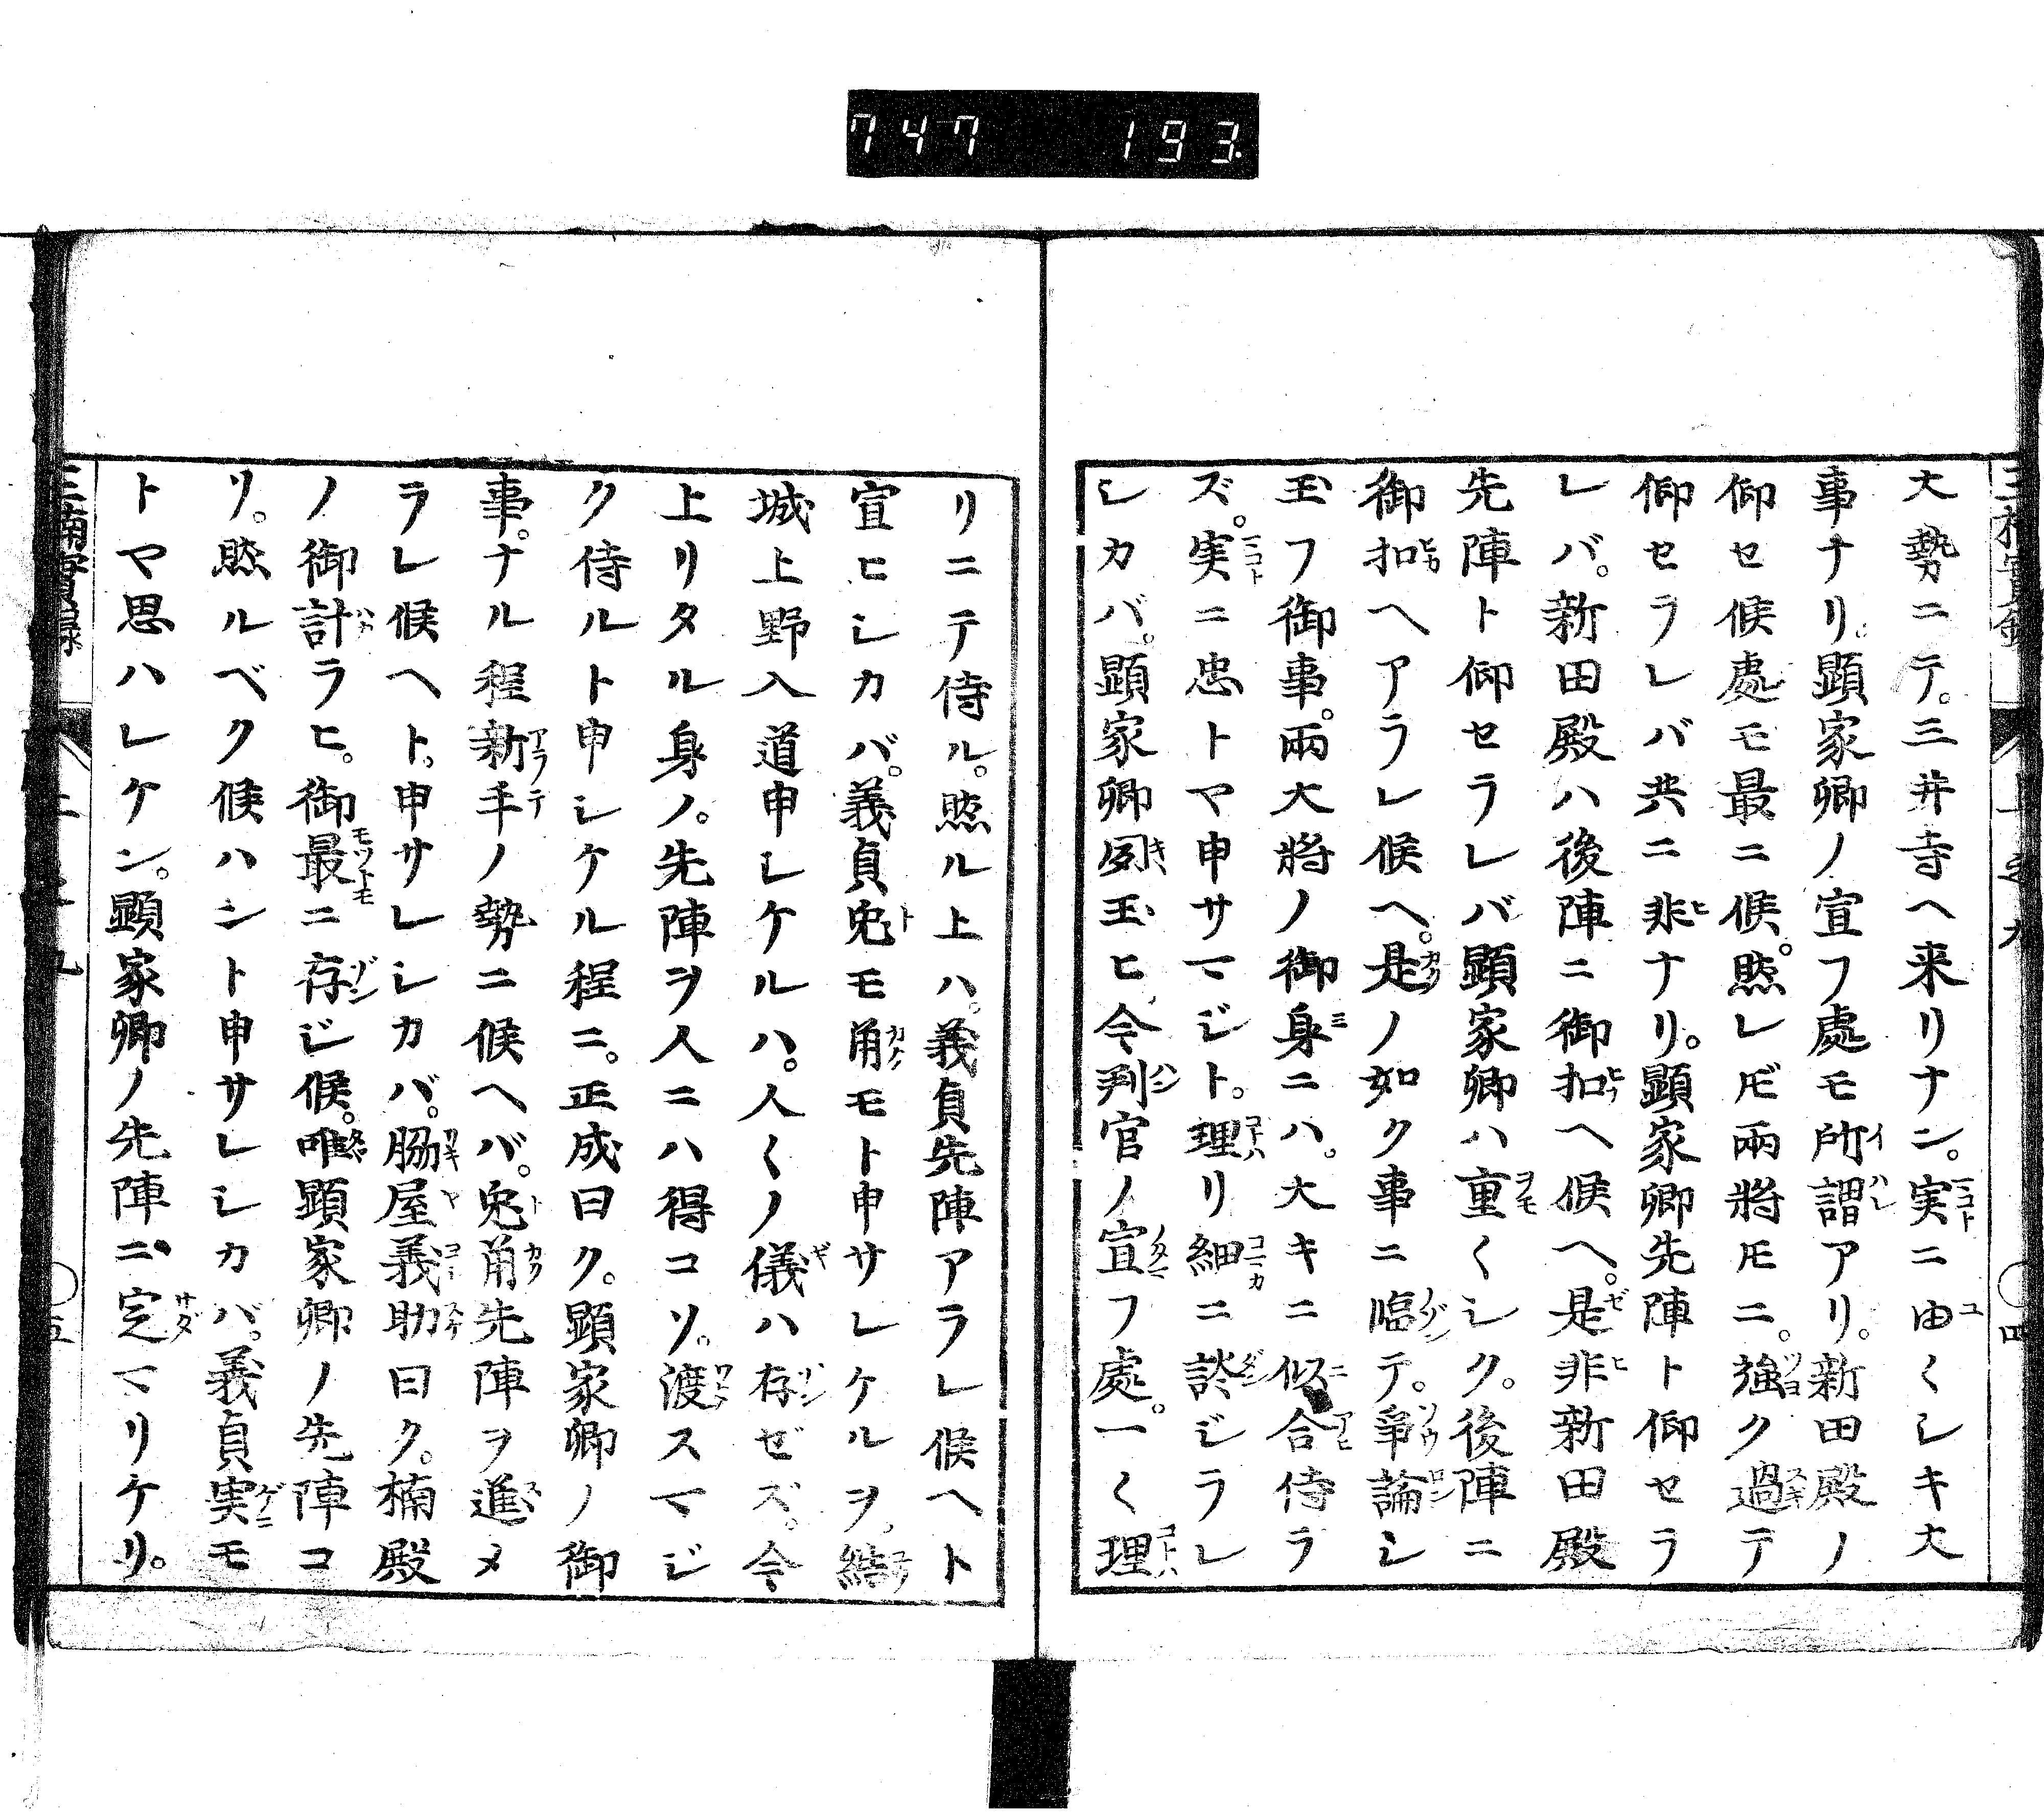 747 193
大勢ニテ。三井寺ヘ来リナン。実ニ由〱シキ大
事ナリ。顕家卿ノ宣フ處モ所謂アリ。新田殿ノ
仰セ候處モ最ニ候。然レ𪜈兩將𪜈ニ。強ク過テ
仰セラレバ共ニ非ナリ。顕家卿先陣ト仰セラ
レバ。新田殿ハ後陣ニ御扣ヘ候ヘ。是非新田殿
先陣ト仰セラレバ顕家卿ハ重〱シク。後陣ニ
御扣ヘアラレ候ヘ。是ノ如ク事ニ臨テ。爭論シ
玉フ御事。兩大將ノ御身ニハ。大キニ似合侍ラ
ズ。実ニ忠トマ申サマジト。理リ細ニ談ジラレ
シカバ。顕家卿聞玉ヒ今判官ノ宣フ處。一〱理
リニテ侍ル。然ル上ハ。義貞先陣アラレ候ヘト
宣ヒシカバ。義貞兎モ角モト申サレケルヲ。結
城上野入道申シケルハ。人〱ノ儀ハ存ゼズ。今
上リタル身ノ。先陣ヲ人ニハ得コソ。渡スマジ
ク侍ルト申シケル程ニ。正成曰ク。顕家卿ノ御
事。ナル程新手ノ勢ニ候ヘバ。兎角先陣ヲ進メ
ラレ候ヘト。申サレシカバ。脇屋義助曰ク。楠殿
ノ御計ラヒ。御最ニ存ジ候。唯顕家卿ノ先陣コ
リ。然ルベク候ハント申サレシカバ。義貞実モ
トマ思ハレケン。顕家卿ノ先陣ニ定マリケリ。
三楠實録